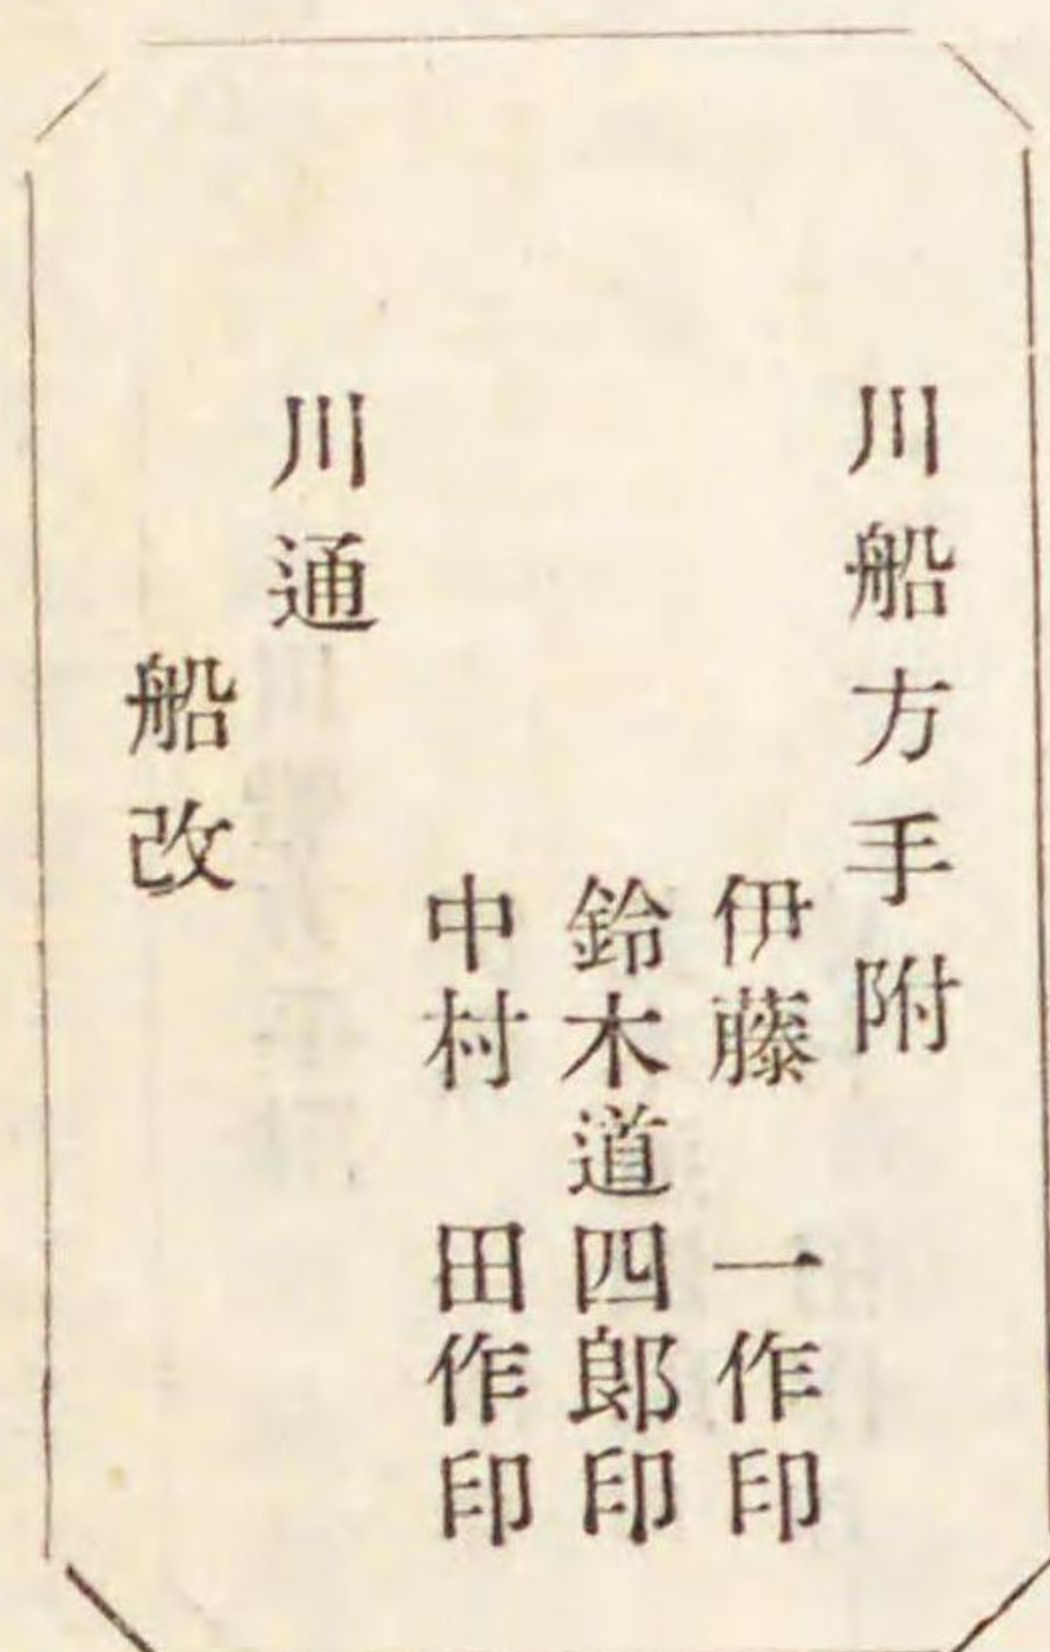 川船方手附
伊藤　一作印
鈴木道四郎印
中村　田作印
川通
船改